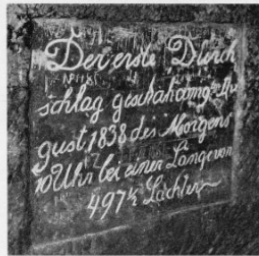 Der erste Durch
schlag geschah am 2ᵗ Au
gust 1838 des Morgens
10 Uhr bei einer Länge von
497½ Lachter